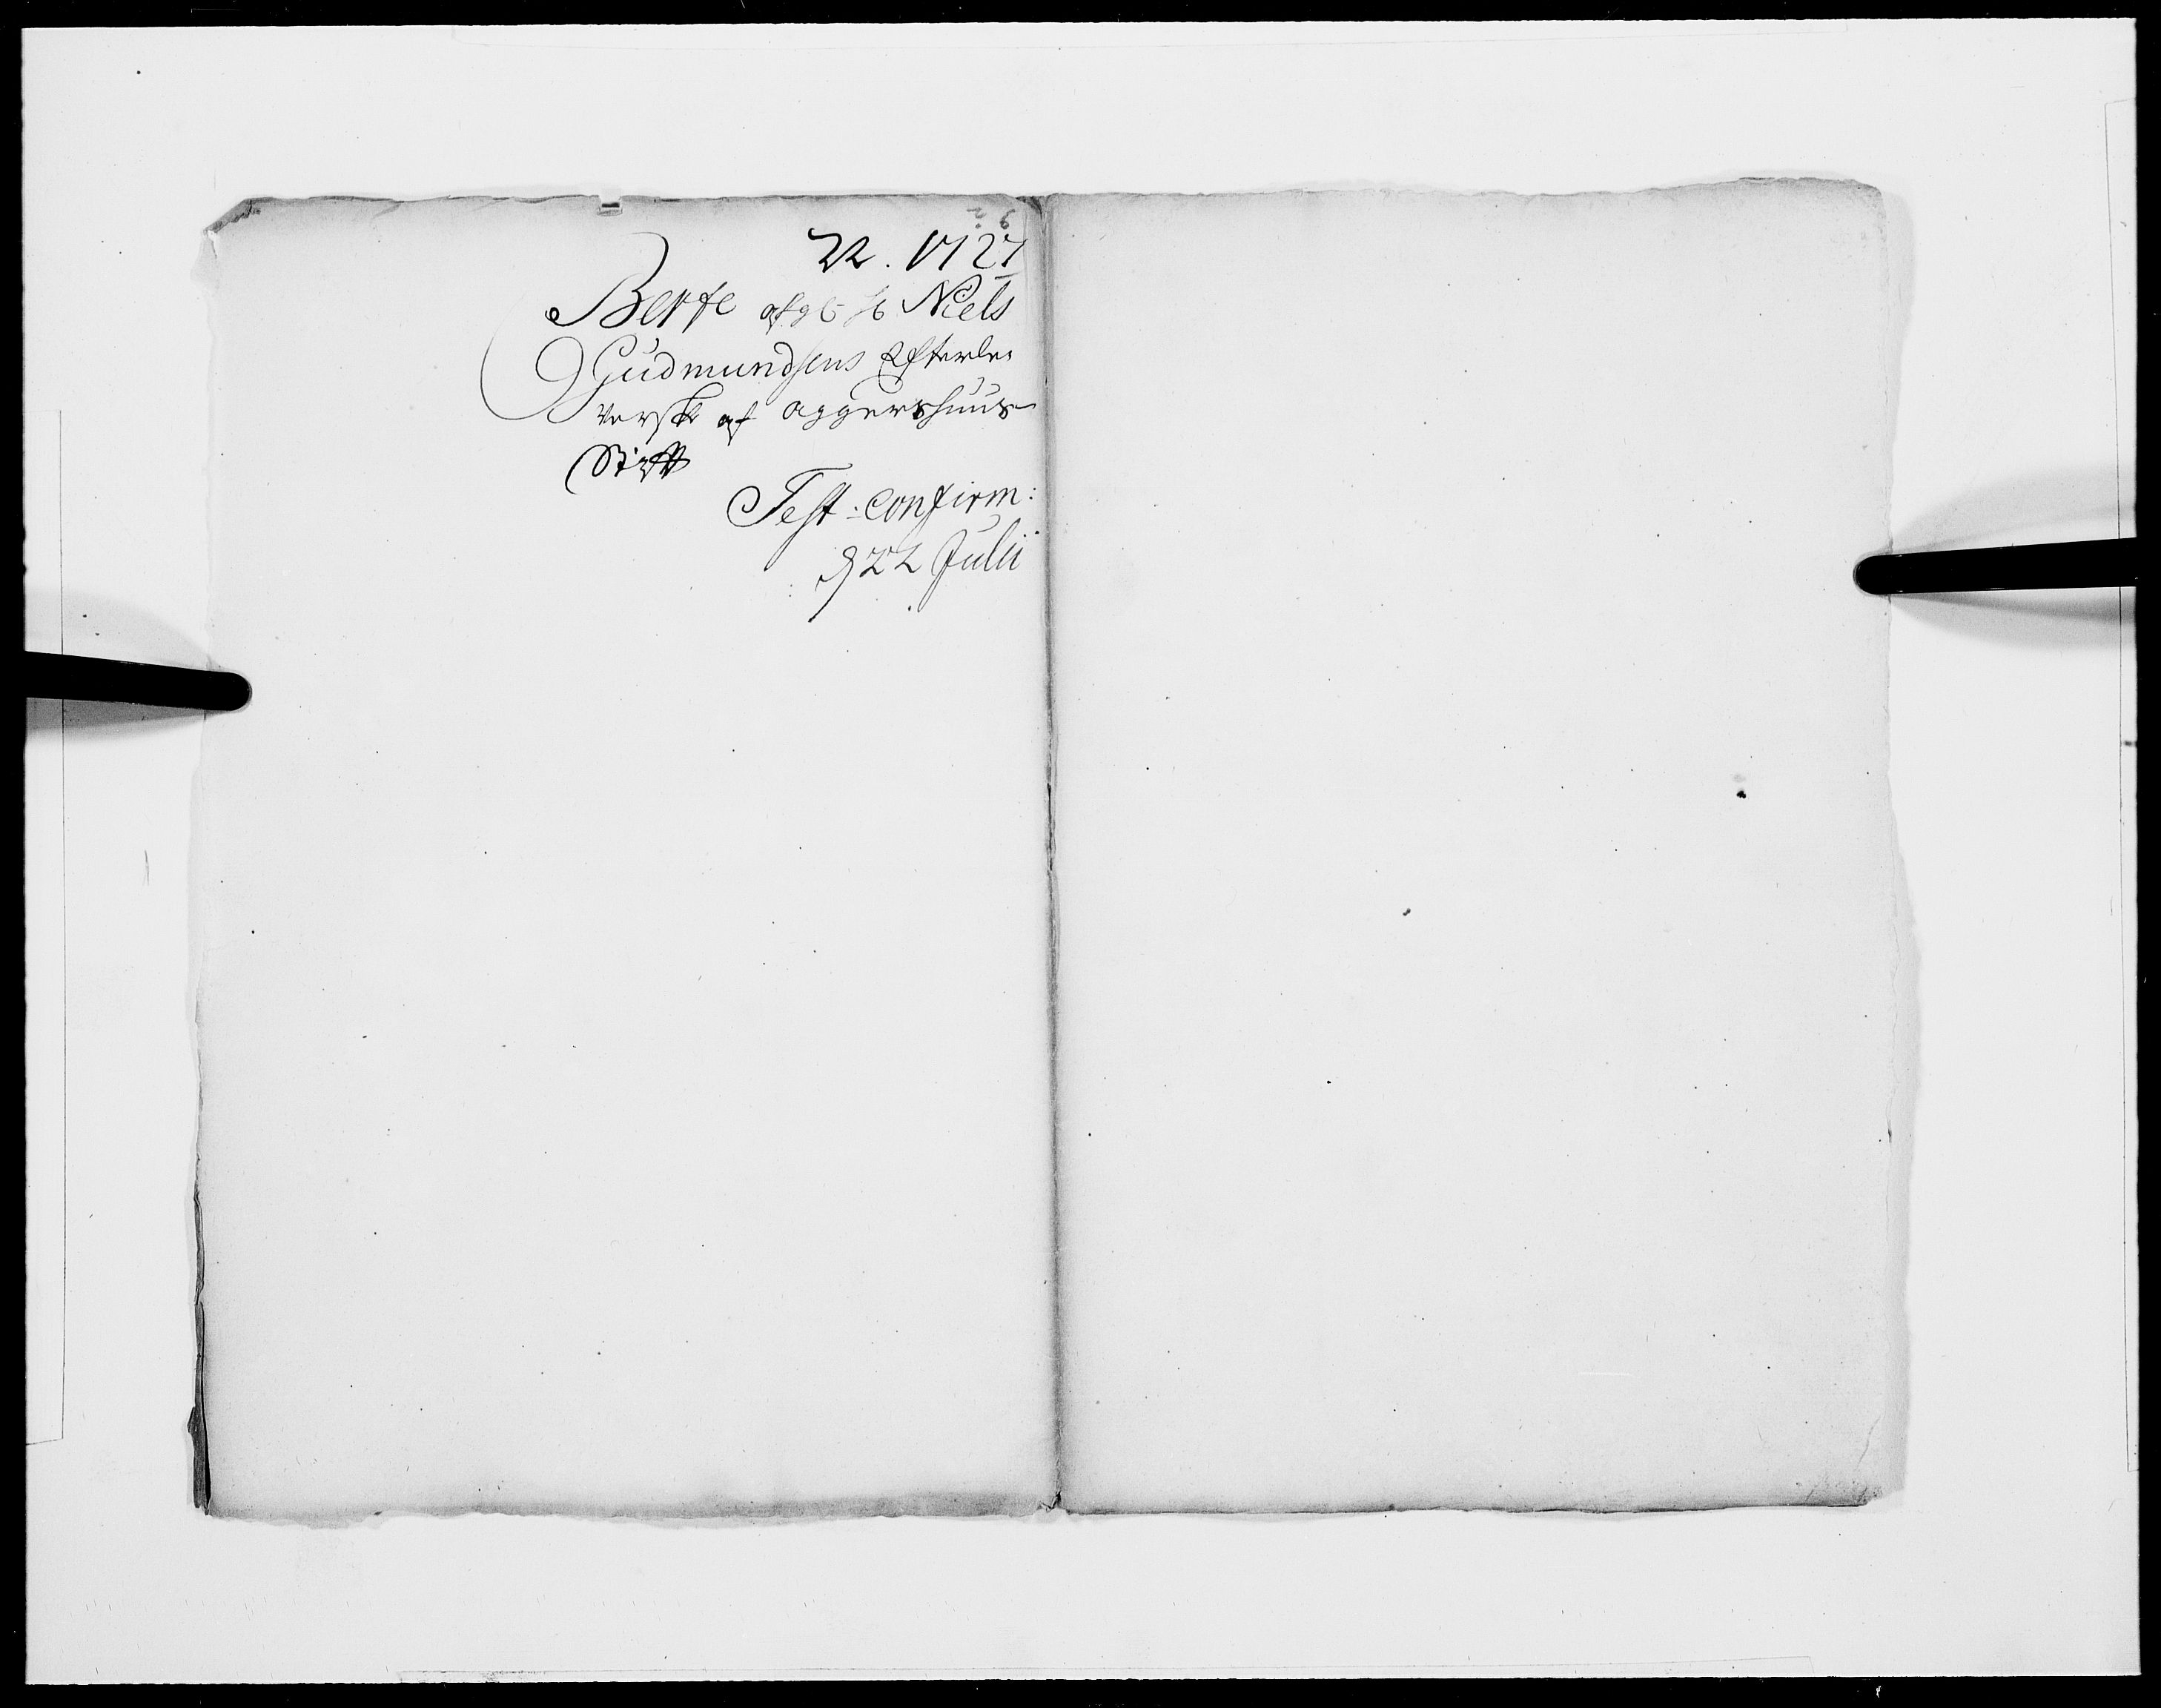 22. 1727
Berte afg: Niels
Gudmundsens Efterle
verske af Aggershuus
Stift
Test: confirm:
d 22 Julii